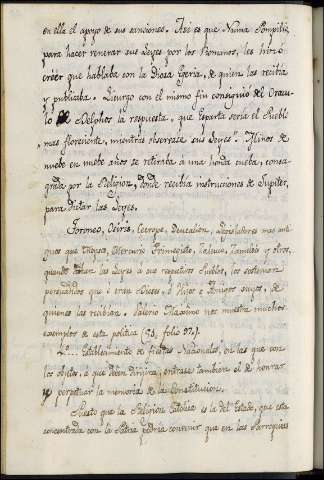 en ella el apoyo de sus sanciones. Asi es que Numa Pompilio
para hacer venerar sus Leyes por los Romanos, les hizo
creer que hablaba con la Diosa Egeria, de quien las recibia
y publicaba. Licurgo con el mismo fin consiguió del Oracu-
lo Delphos la respuesta, que Esparta seria el Pueblo
"mas floreciente, mientras observase sus Leyes". Minos de
nuebe en nuebe años se retiraba a una honda cueba, consa-
grada por la Religion, donde recibia instrucciones de Jupiter,
para Dictar las Leyes.
Foroneo, Osiris, Cecrope, Deucalion, Legisladores mas anti-
guos que Moyses, Mercurio Trimegisto, Zaleuco, Zamolxis y otros,
quando daban las Leyes a sus respectivos Pueblos, los sostenian
persuadidos que ó eran Dioses ó Hijos ó Amigos suyos, de
quienes las recibian. Valerio Maximo nos muestra muchos
exemplos de esta politica (73, folio 97,).
Establecimiento de fiestas Nacionales, en las que con
los objetos, a que deben dirigirse, entrase tambien el de honrar
y perpetuar la memoria de la Constitucion.
Puesto que la Religion Catolica es la del Estado, que esta
concentrada con la Patria podria convenir que en las Parroquias